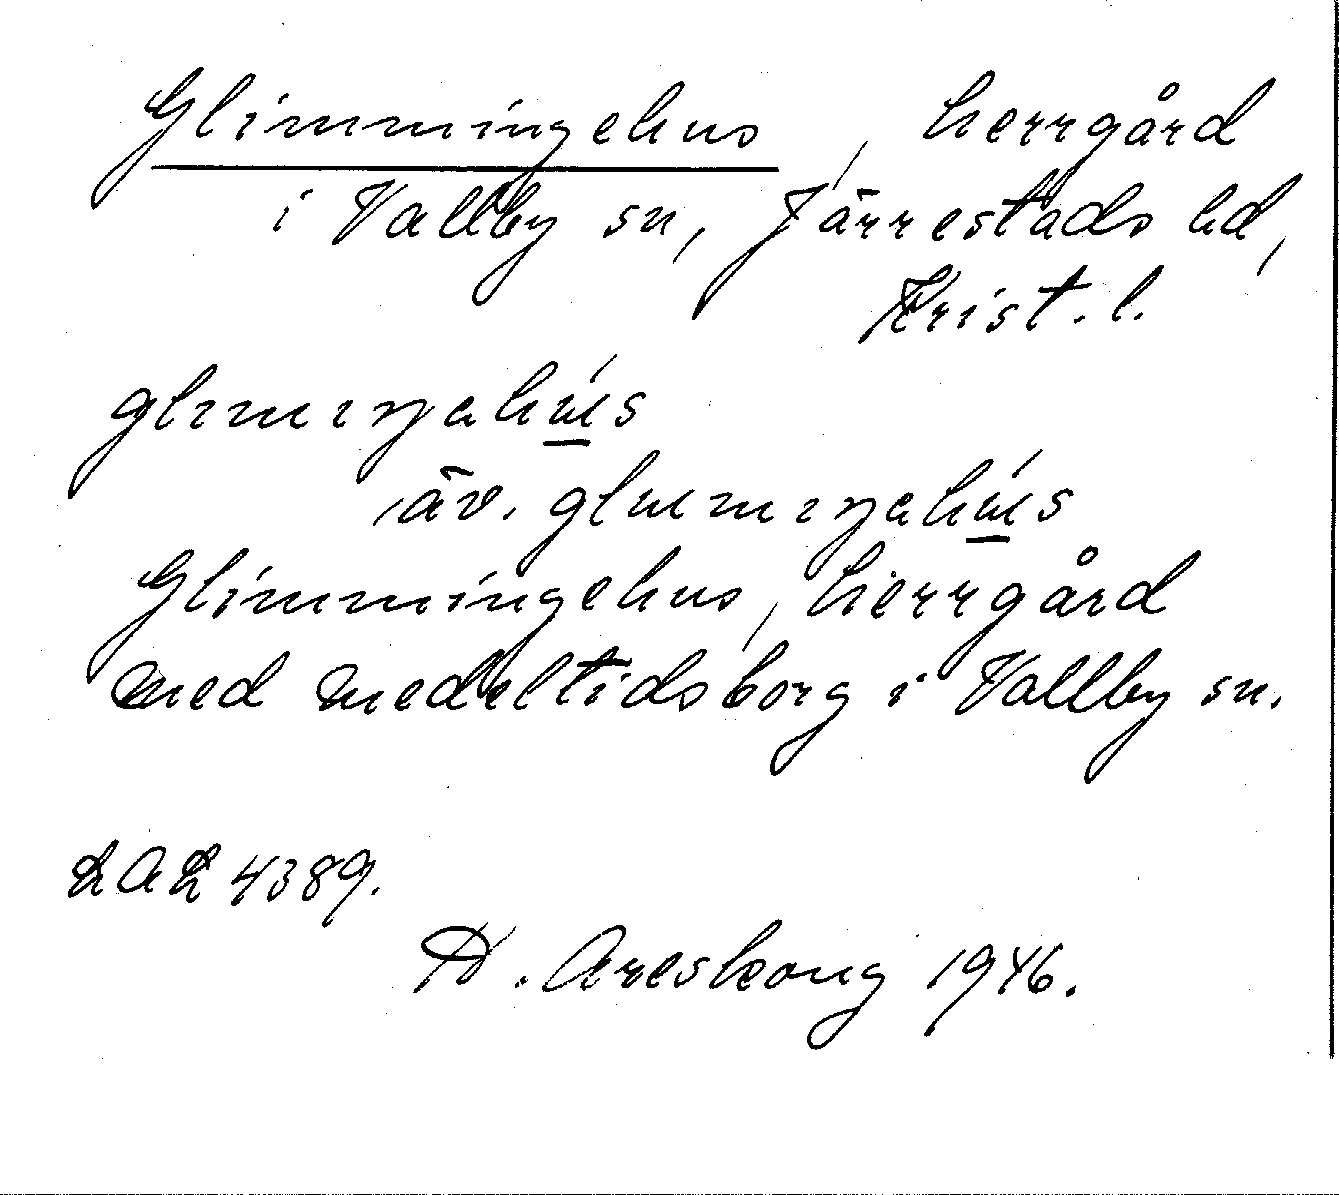 Glimmingehus, herrgård
i Vallby sn, Järrestads hd,
Krist. l.
äv.
Glimmingehus, herrgård
med medeltidsborg i Vallby sn.
LAL 4389.
Areskoug 1946.